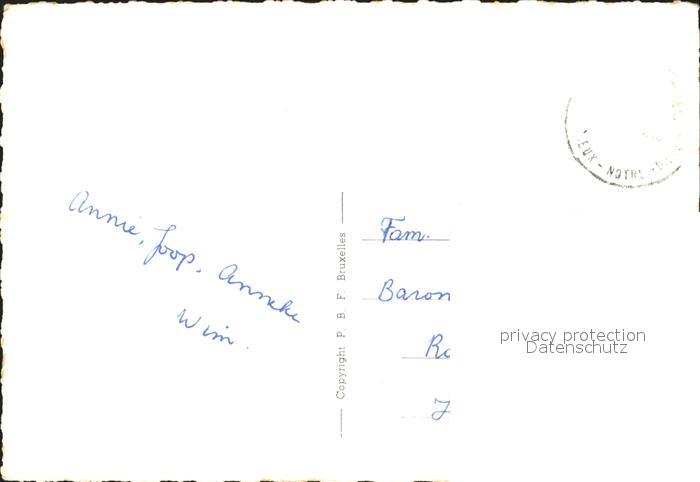 EUX - NOTRE - D
Annie, Joop, Anneke
Wim.
Copyright P. B. F. Bruxelles
Fam.
Baron
privacy protection
Datenschutz